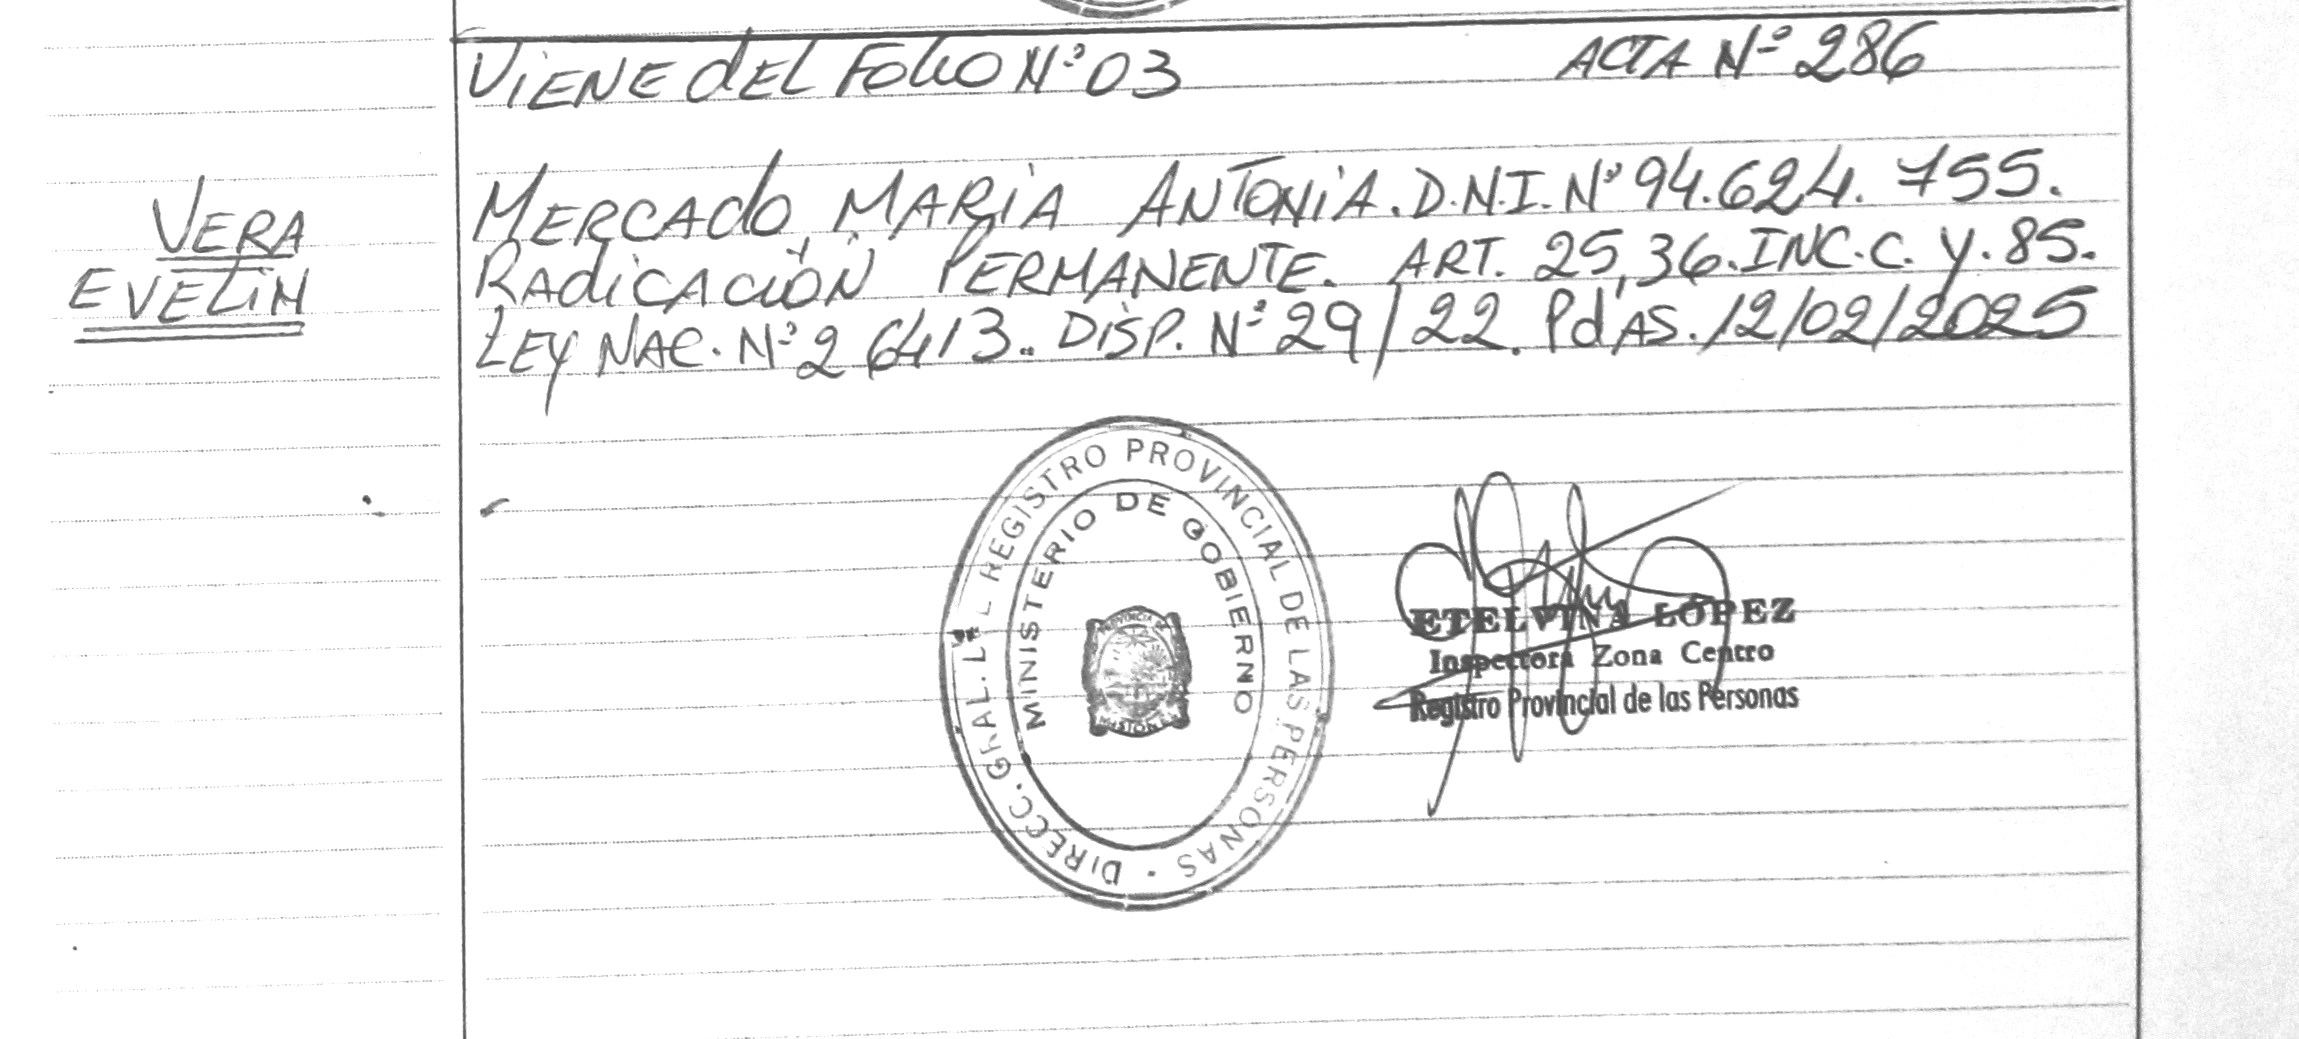 ViENE dEL Folio Nº 03 ACTA Nº 286
VERA
EVELiN
MERCAdo MARiA ANTONiA. D.N.I. Nº 94.624.755.
RAdiCACiÓN PERMANENTE. ART. 25, 36. INC. C. Y. 85.
LEY NAC. Nº 26413. DiSP. Nº 29/22. PdAS. 12/02/2025
DIRECC. GRAL. DEL REGISTRO PROVINCIAL DE LAS PERSONAS
MINISTERIO DE GOBIERNO
PROVINCIA DE
MISIONES
ETELVINA LOPEZ
Inspectora Zona Centro
Registro Provincial de las Personas